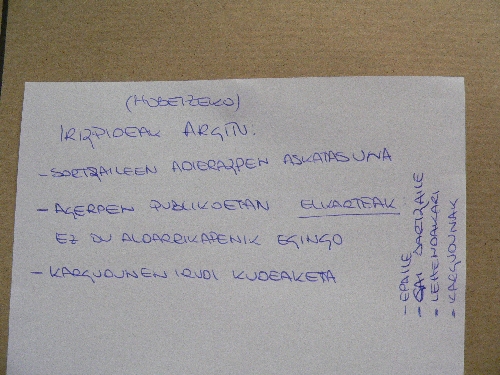 (HOBETZEKO)
IRIZPIDEAK ARGITU:
- SORTZAILEEN ADIERAZPEN ASKATASUNA
- AGERPEN PUBLIKOETAN ELKARTEAK
EZ DU ALDARRIKAPENIK EGINGO
- KARGUDUNEN IRUDI KUDEAKETA
- EPAILE
- GAI JARTZAILE
• LEHENDAKARI
• KARGUDUNAK